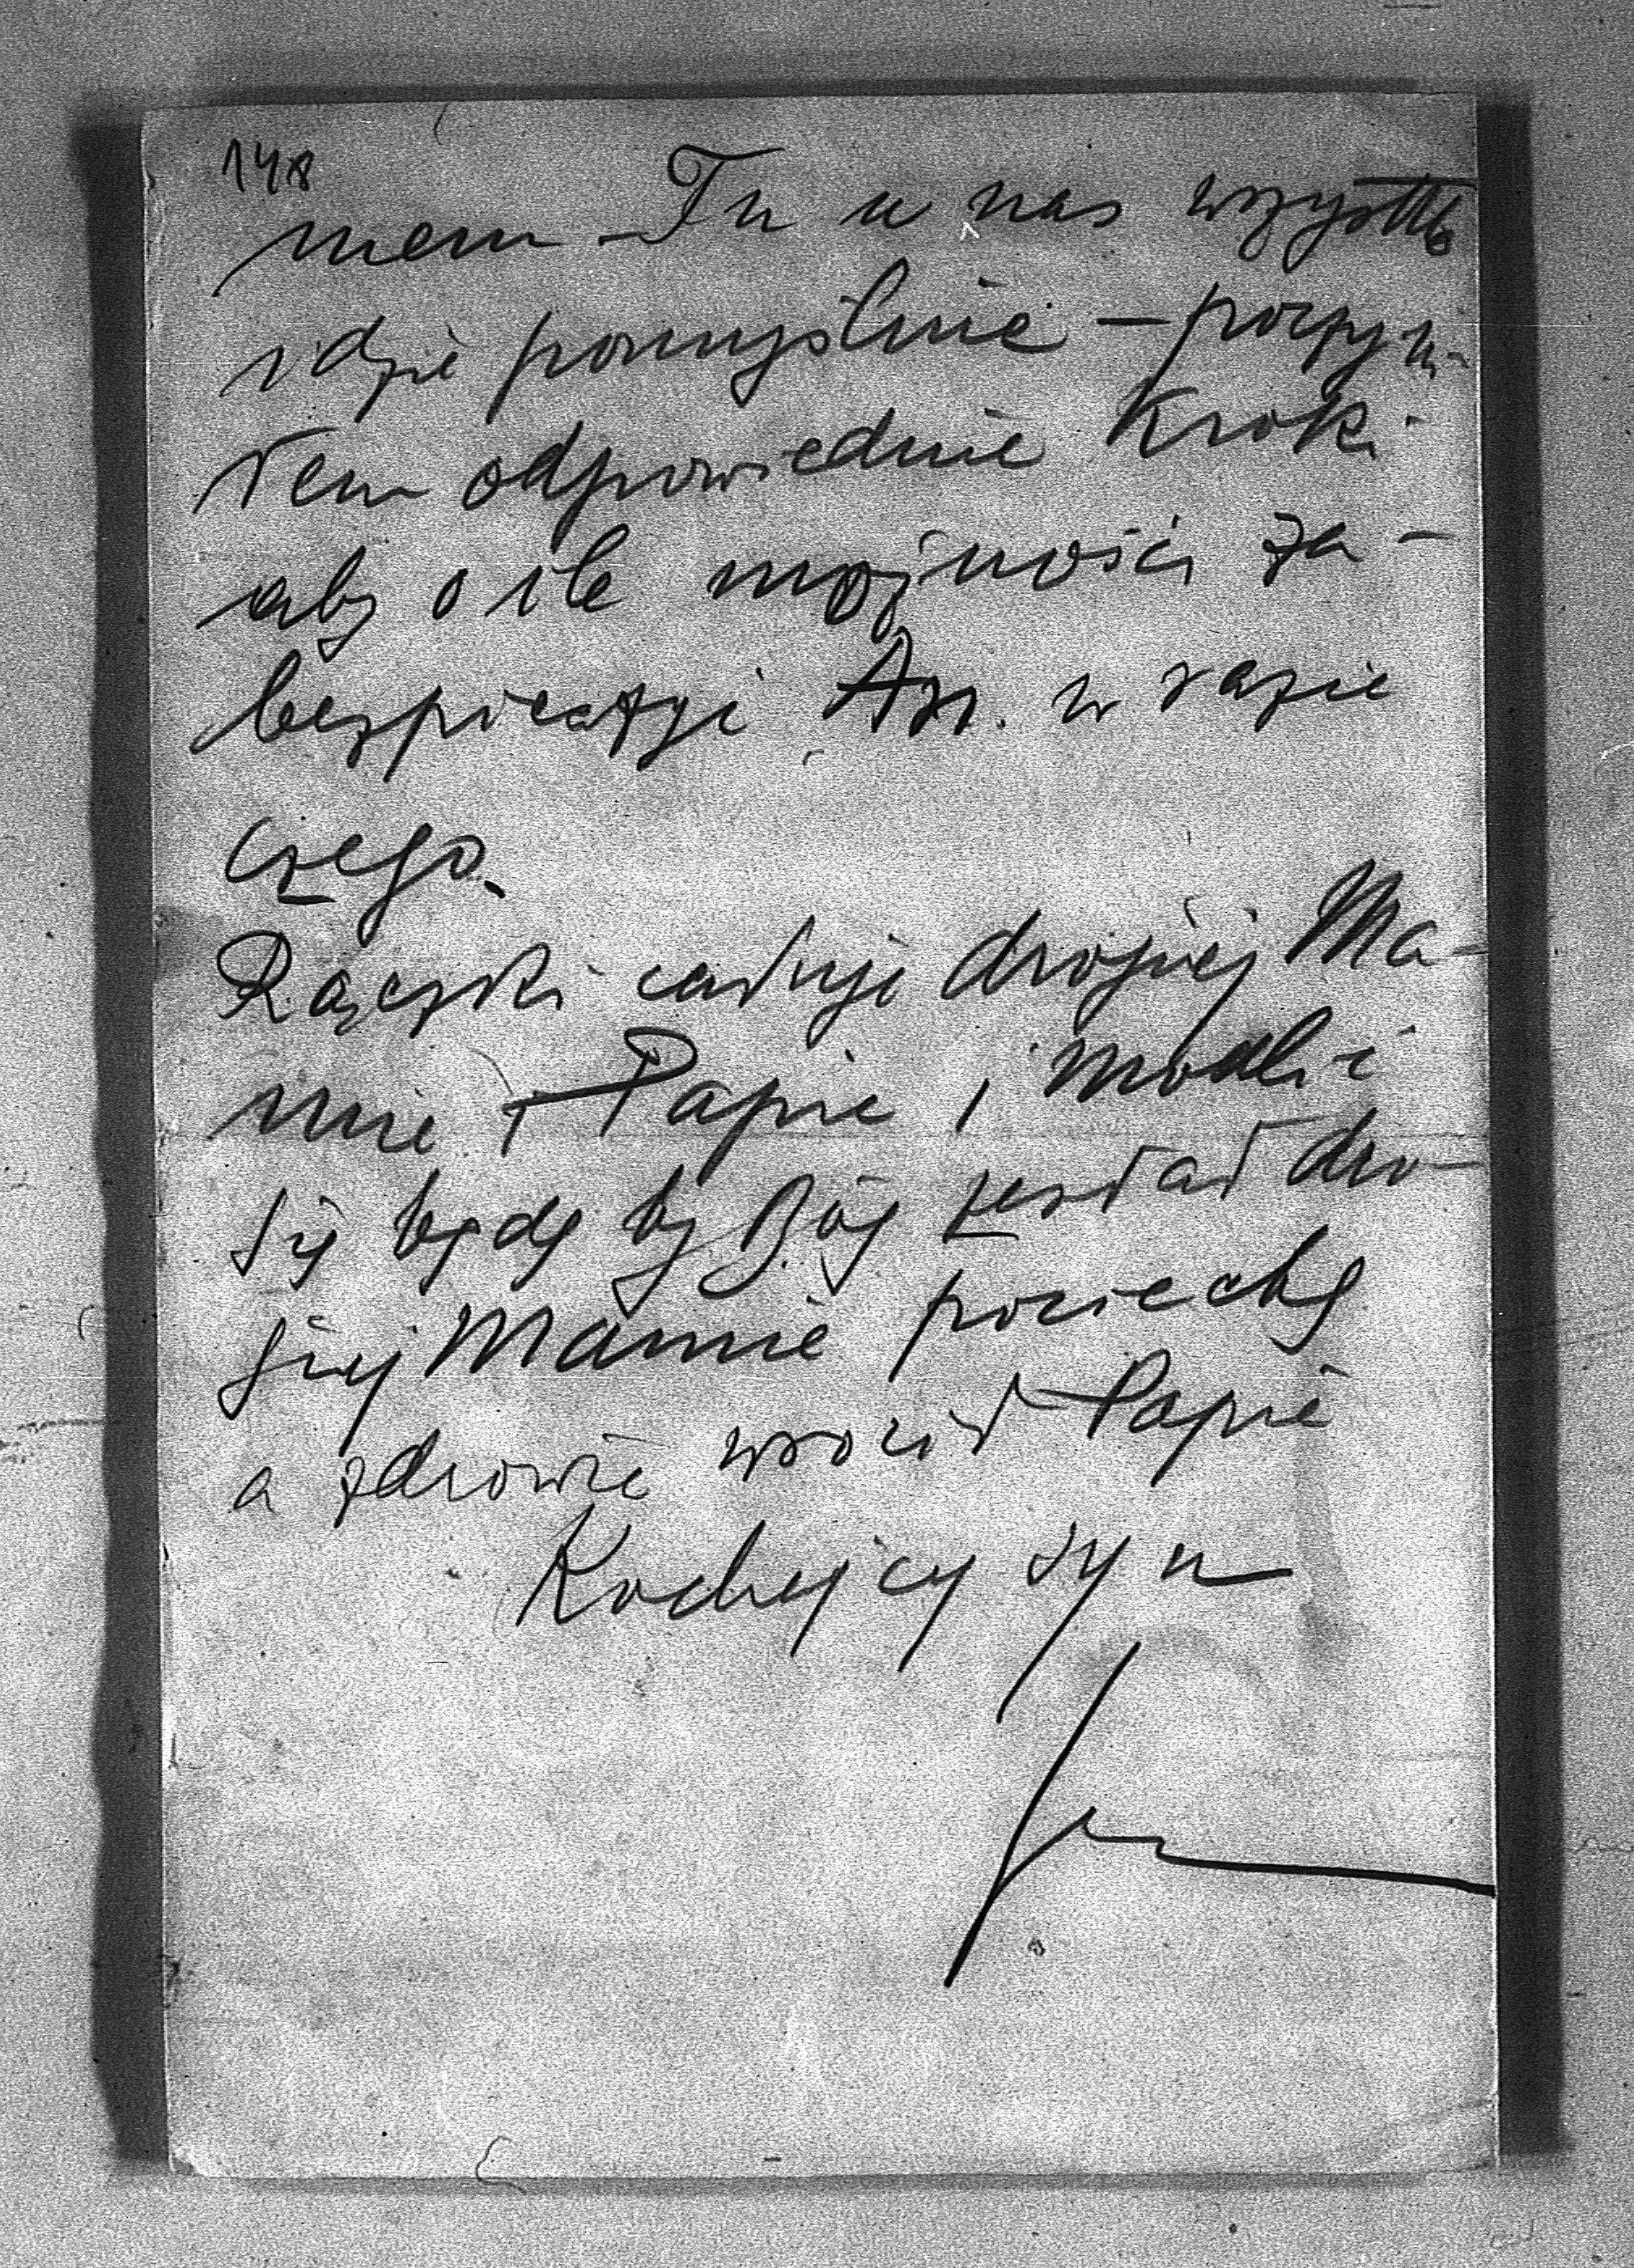 148
mem - Tu u nas wszystko
idzie pomyślnie - poczyni-
łem odpowiednie kroki
aby o ile możności za-
bezpieczyć w razie
czego.
Rączki całuję drogiej Ma-
mie i Papie i modlić
się będę by Bóg zesłał dro-
giej Mamie pociechę
a zdrowie wrócił Papie
Kochający syn